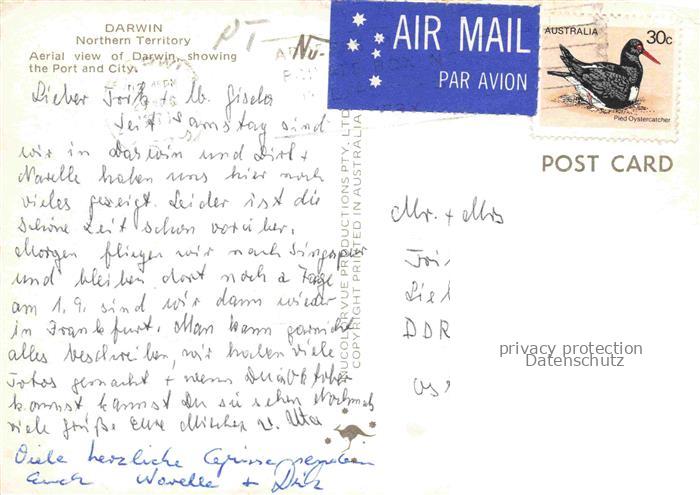 DARWIN
Northern Territory
Aerial view of Darwin, showing
the Port and City.
NT
AIR MAIL
PAR AVION
AUSTRALIA
30c
Pied Oystercatcher
POST CARD
Lieber Fritz + lb. Gisela
Seit Samstag sind
wir in Darwin und Dirk +
Narelle haben uns hier noch
vieles gezeigt. Leider ist die
schöne Zeit schon vorüber.
Morgen fliegen wir nach Singapur
und bleiben dort noch 2 Tage
am 1.9. sind wir dann wieder
in Frankfurt. Man kann garnicht
alles beschreiben, wir haben viele
Fotos gemacht + wenn Du im Oktober
kommst kannst Du sie sehen. Nochmals
viele Grüße Eure u. Uta
Viele herzliche Grüsse
Euch Narelle + Dirk
NUCOLORVUE PRODUCTIONS PTY. LTD.
COPYRIGHT PRINTED IN AUSTRALIA
Mr. + Mrs
DDR
privacy protection
Datenschutz